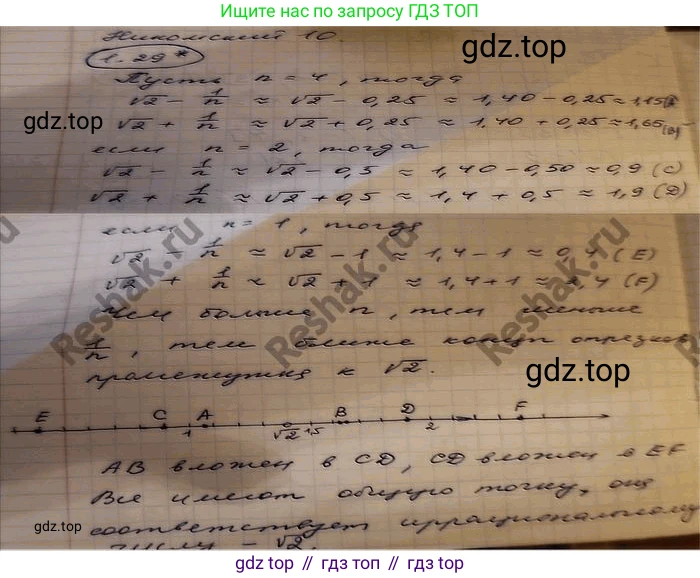 Ищите нас по запросу ГДЗ ТОП
Никольский 10.
1.29*
gdz.top
Пусть n = 4, тогда
√2 - 1/n ≈ √2 - 0,25 ≈ 1,40 - 0,25 ≈ 1,15
gdz.top
√2 + 1/n ≈ √2 + 0,25 ≈ 1,40 + 0,25 ≈ 1,65 (B)
если n = 2, тогда
√2 - 1/n ≈ √2 - 0,5 ≈ 1,40 - 0,50 ≈ 0,9 (C)
√2 + 1/n ≈ √2 + 0,5 ≈ 1,4 + 0,5 ≈ 1,9 (D)
если n = 1, тогда
√2 - 1/n ≈ √2 - 1 ≈ 1,4 - 1 ≈ 0,4 (E)
√2 + 1/n ≈ √2 + 1 ≈ 1,4 + 1 ≈ 2,4 (F)
Reshak.ru
Reshak.ru
Reshak.ru
Чем больше n, тем меньше
1/n, тем ближе концы
промежутка к √2.
gdz.top
E C A B D F
1 √2 1,5 2
AB вложен в CD, CD вложен в EF
Все имеют общую точку, она
соответствует иррациональному
числу - √2.
gdz.top
gdz.top
гдз топ // гдз топ // гдз топ